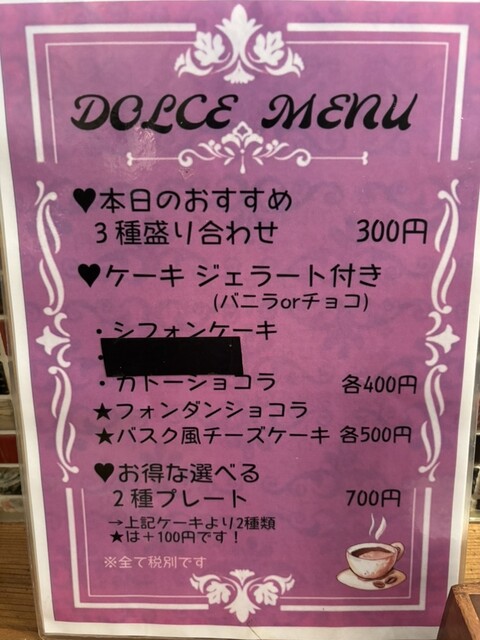 DOLCE MENU
♥本日のおすすめ
３種盛り合わせ 300円
♥ケーキ ジェラート付き
(バニラorチョコ)
・シフォンケーキ
・
・ガトーショコラ 各400円
★フォンダンショコラ
★バスク風チーズケーキ 各500円
♥お得な選べる
２種プレート 700円
→上記ケーキより2種類
★は＋100円です！
※全て税別です